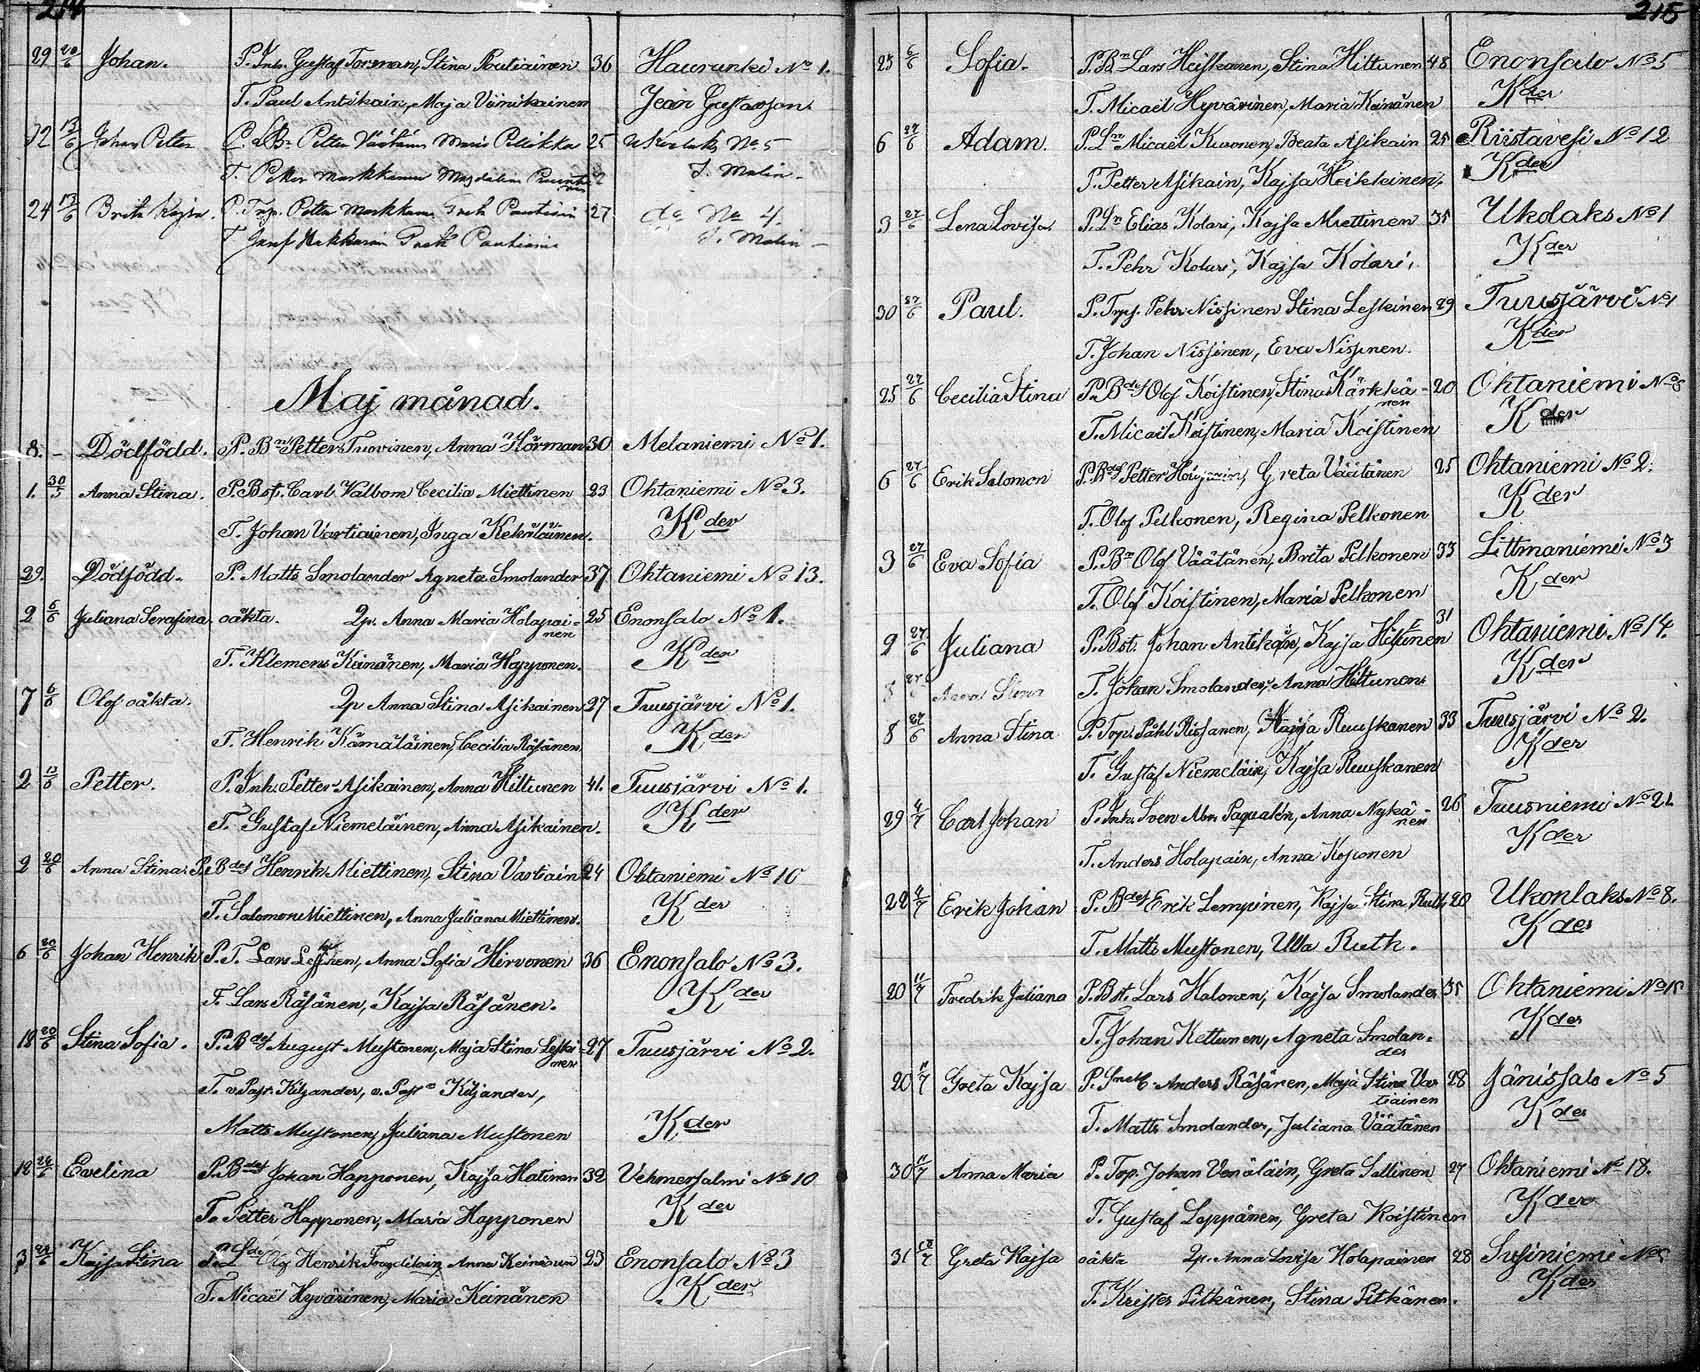 214
29 20/6 Johan. P. Inh. Gustaf Forsman, Stina Poutiainen 36 Hauvunki No 1.
T. Paul Antikain, Maja Viinikainen Jean Gustafson
12 13/6 Johan Petter 25 No 5
T. Petter Markkanen Magdalena J. Malin
24 13/6 Brita Kajsa. P. Torp. Petter Markkanen 27 de No 4.
J. Malin
Maj månad.
8. – Dödfödd. P. Bn Petter Tuovinen, Anna Hörman 30 Melaniemi No 1.
1. 30/5 Anna Stina. P. Bst. Carl Valbom Cecilia Miettinen 23 Ohtaniemi No 3.
T. Johan Vartiainen, Inga Kekäläinen. Kder
29. Dödfödd. P. Matts Smolander Agneta Smolander 37 Ohtaniemi No 13.
2 6/6 Juliana Serafina. oäkta. 2p. Anna Maria Holapai- 25 Enonsalo No 1.
nen
T. Klemens Keinänen, Maria Happonen. Kder
7 6/6 Olof oäkta. 2p Anna Stina Asikainen 27 Tuusjärvi No 1.
T. Henrik Hämäläinen, Cecilia Räsänen Kder
2 13/6 Petter. P. Inh. Petter Asikainen, Anna Hiltunen 41. Tuusjärvi No 1.
T. Gustaf Niemeläinen, Anna Asikainen. Kder
2 20/6 Anna Stina. P. Bdes Henrik Miettinen, Stina Vartiain 24 Ohtaniemi No 10
T. Salomon Miettinen, Anna Juliana Miettinen. Kder
6 20/6 Johan Henrik P. T. Lars Leskinen, Anna Sofia Hirvonen 36 Enonsalo No 3.
T. Lars Räsänen, Kajsa Räsänen. Kder
18 20/6 Stina Sofia. P. Bdes August Mustonen, Maja Stina Leski- 27 Tuusjärvi No 2.
nen
T. v. Past. Kiljander, v. Past Kiljander,
Matts Mustonen, Juliana Mustonen Kder
12 26/6 Evelina P. Bdes Johan Happonen, Kajsa Hatinen 32 Vehmersalmi No 10
T. Petter Happonen, Maria Happonen Kder
3 Kajsa Stina Henrik Anna Keinänen 23 Enonsalo No 3
T. Micael Hyvärinen, Maria Keinänen Kder
215
25 6/6 Sofia. P. Bn Lars Heiskanen, Stina Hiltunen 48 Enonsalo No 5
T. Micael Hyvärinen, Maria Keinänen Kder
6 27/6 Adam. P. Ln Micael Kuronen, Beata Asikain 25 Riistavesi No 12
T. Petter Asikain, Kajsa Heikkeinen. Kder
3 27/6 Lena Lovisa. P. Ln Elias Kolari, Kajsa Miettinen 35 Ukolaks No 1
T. Pehr Kolari, Kajsa Kolari. Kder
30 27/6 Paul. P. Torp. Pehr Nissinen Stina Leskeinen 29 Tuusjärvi No 1
T. Johan Nissinen, Eva Nissinen. Kder
25 27/6 Cecilia Stina P. Bdes Olof Koistinen, Stina Kärkkä- 20 Ohtaniemi No 8
nen
T. Micael Koistinen, Maria Koistinen Kder
6 27/6 Erik Salomon P. Bdes Petter Greta Väätänen 25 Ohtaniemi No 2.
T. Olof Pelkonen, Regina Pelkonen Kder
3 27/6 Eva Sofia P. Bn Olof Väätänen, Brita Pelkonen 33 Littmaniemi No 3
T. Olof Koistinen, Maria Pelkonen Kder
2 27/6 Juliana P. Bst. Johan Antikain, Kajsa Hiltunen 31 Ohtaniemi No 14.
T. Johan Smolander, Anna Hiltunen Kder
8 27/6 Anna Stina
8 27/6 Anna Stina P. Torp. Påhl Rissanen, Kajsa Ruuskanen 33 Tuusjärvi No 2.
T. Gustaf Niemeläin, Kajsa Ruuskanen Kder
29 4/7 Carl Johan P. Inh. Sven Abr. Paqualén, Anna Nykä- 26 Tuusniemi No 21.
nen
T. Anders Holapain, Anna Koponen Kder
22 4/7 Erik Johan P. Bdes Erik Lempinen, Kajsa Stina Ruth 28 Ukonlaks No 8.
T. Matts Mustonen, Ulla Ruth. Kder
20 11/7 Fredrik Juliana P. Bst. Lars Halonen, Kajsa Smolander 35 Ohtaniemi No 15
T. Johan Kettunen, Agneta Smolan- Kder
der
20 11/7 Greta Kajsa P. Anders Räsänen, Maja Stina Var 28 Jänissalo No 5
tiainen
T. Matts Smolander, Juliana Väätänen Kder
30 11/7 Anna Maria P. Torp. Johan Venäläin, Greta Sallinen 27 Ohtaniemi No 18.
T. Gustaf Leppänen, Greta Koistinen Kder
31 18/7 Greta Kajsa oäkta 2p. Anna Lovisa Holapainen 28 Susiniemi No
T. Krister Pitkänen, Stina Pitkänen. Kder